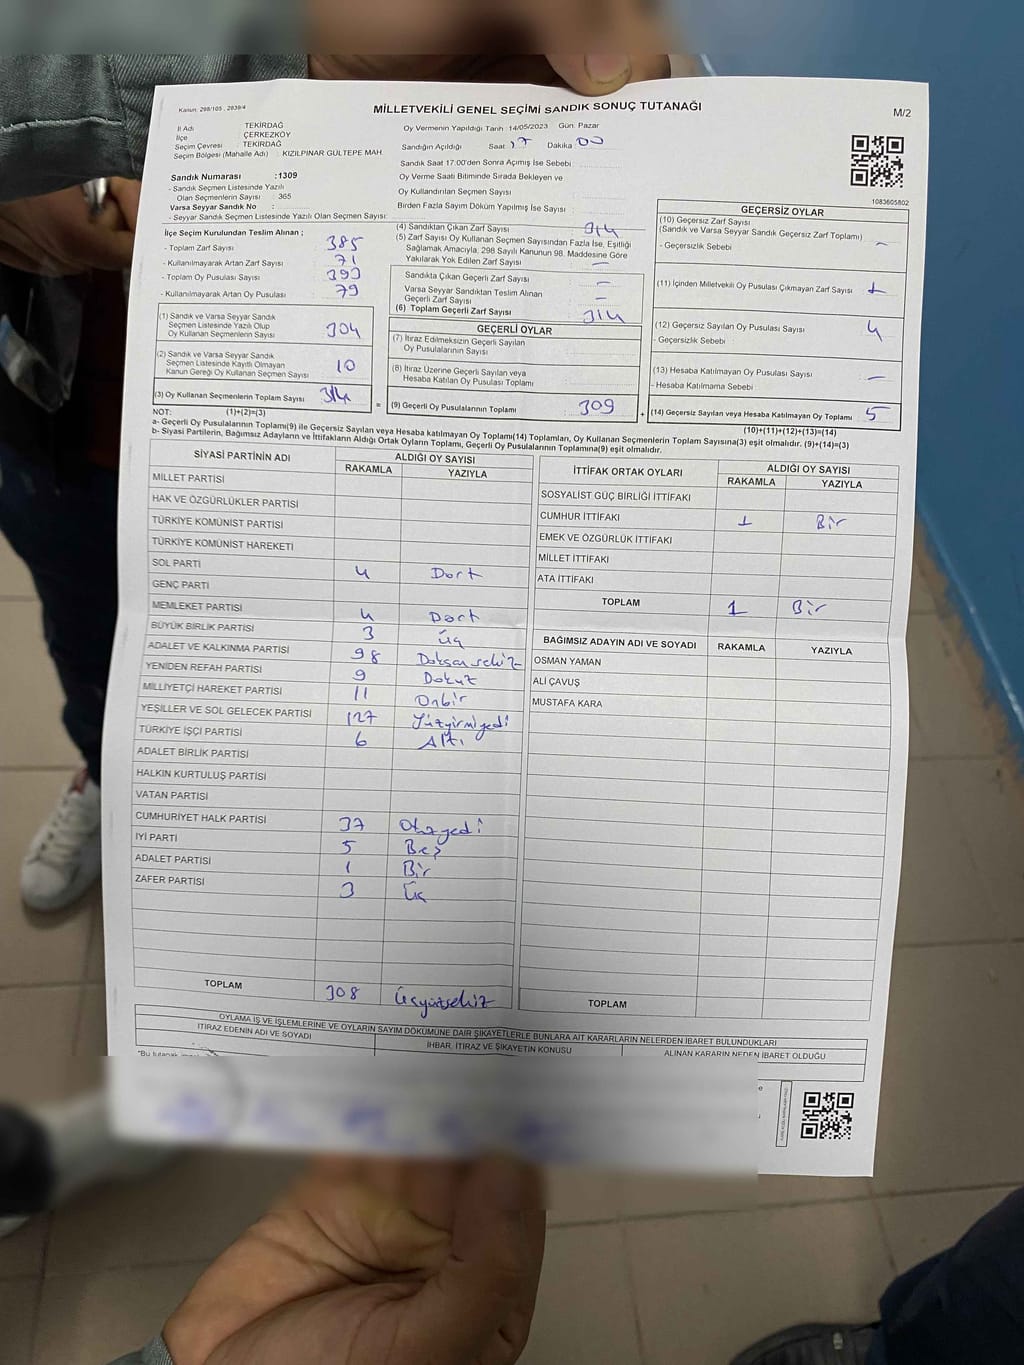 Kanun: 298/105 , 2839/4
MİLLETVEKİLİ GENEL SEÇİMİ SANDIK SONUÇ TUTANAĞI
M/2
İl Adı TEKİRDAĞ
İlçe ÇERKEZKÖY
Seçim Çevresi : TEKİRDAĞ
Seçim Bölgesi (Mahalle Adı) : KIZILPINAR GÜLTEPE MAH.
Oy Vermenin Yapıldığı Tarih :14/05/2023 Gün: Pazar
Sandığın Açıldığı Saat: 17 Dakika: 00
Sandık Saat 17:00'den Sonra Açılmış İse Sebebi:
Oy Verme Saati Bitiminde Sırada Bekleyen ve
Oy Kullandırılan Seçmen Sayısı
Birden Fazla Sayım Döküm Yapılmış İse Sayısı
Sandık Numarası :1309
- Sandık Seçmen Listesinde Yazılı
Olan Seçmenlerin Sayısı : 365
Varsa Seyyar Sandık No :
- Seyyar Sandık Seçmen Listesinde Yazılı Olan Seçmen Sayısı:
1083605802
İlçe Seçim Kurulundan Teslim Alınan ;
- Toplam Zarf Sayısı : 385
- Kullanılmayarak Artan Zarf Sayısı : 71
- Toplam Oy Pusulası Sayısı : 393
- Kullanılmayarak Artan Oy Pusulası : 79
(1) Sandık ve Varsa Seyyar Sandık
Seçmen Listesinde Yazılı Olup
Oy Kullanan Seçmenlerin Sayısı 304
(2) Sandık ve Varsa Seyyar Sandık
Seçmen Listesinde Kayıtlı Olmayan
Kanun Gereği Oy Kullanan Seçmen Sayısı 10
(3) Oy Kullanan Seçmenlerin Toplam Sayısı 314
(4) Sandıktan Çıkan Zarf Sayısı : 314
(5) Zarf Sayısı Oy Kullanan Seçmen Sayısından Fazla İse, Eşitliği
Sağlamak Amacıyla, 298 Sayılı Kanunun 98. Maddesine Göre
Yakılarak Yok Edilen Zarf Sayısı : —
Sandıkta Çıkan Geçerli Zarf Sayısı : —
Varsa Seyyar Sandıktan Teslim Alınan
Geçerli Zarf Sayısı : —
(6) Toplam Geçerli Zarf Sayısı : 314
GEÇERLİ OYLAR
(7) İtiraz Edilmeksizin Geçerli Sayılan
Oy Pusulalarının Sayısı
(8) İtiraz Üzerine Geçerli Sayılan veya
Hesaba Katılan Oy Pusulası Toplamı
= (9) Geçerli Oy Pusulalarının Toplamı : 309 +
GEÇERSİZ OYLAR
(10) Geçersiz Zarf Sayısı
(Sandık ve Varsa Seyyar Sandık Geçersiz Zarf Toplamı)
- Geçersizlik Sebebi : —
(11) İçinden Milletvekili Oy Pusulası Çıkmayan Zarf Sayısı : 1
(12) Geçersiz Sayılan Oy Pusulası Sayısı : 4
- Geçersizlik Sebebi :
(13) Hesaba Katılmayan Oy Pusulası Sayısı : —
- Hesaba Katılmama Sebebi :
(14) Geçersiz Sayılan veya Hesaba Katılmayan Oy Toplamı : 5
NOT: (1)+(2)=(3)
(10)+(11)+(12)+(13)=(14)
a- Geçerli Oy Pusulaların Toplamı(9) ile Geçersiz Sayılan veya Hesaba katılmayan Oy Toplamı(14) Toplamları, Oy Kullanan Seçmenlerin Toplam Sayısına(3) eşit olmalıdır. (9)+(14)=(3)
b- Siyasi Partilerin, Bağımsız Adayların ve İttifakların Aldığı Ortak Oyların Toplamı, Geçerli Oy Pusulalarının Toplamına(9) eşit olmalıdır.
SİYASİ PARTİNİN ADI
ALDIĞI OY SAYISI
RAKAMLA YAZIYLA
MİLLET PARTİSİ
HAK VE ÖZGÜRLÜKLER PARTİSİ
TÜRKİYE KOMÜNİST PARTİSİ
TÜRKİYE KOMÜNİST HAREKETİ
SOL PARTİ 4 Dört
GENÇ PARTİ
MEMLEKET PARTİSİ 4 Dört
BÜYÜK BİRLİK PARTİSİ 3 Üç
ADALET VE KALKINMA PARTİSİ 98 Doksansekiz
YENİDEN REFAH PARTİSİ 9 Dokuz
MİLLİYETÇİ HAREKET PARTİSİ 11 Onbir
YEŞİLLER VE SOL GELECEK PARTİSİ 127 Yüzyirmiyedi
TÜRKİYE İŞÇİ PARTİSİ 6 Altı
ADALET BİRLİK PARTİSİ
HALKIN KURTULUŞ PARTİSİ
VATAN PARTİSİ
CUMHURİYET HALK PARTİSİ 37 Otuzyedi
İYİ PARTİ 5 Beş
ADALET PARTİSİ 1 Bir
ZAFER PARTİSİ 3 Üç
TOPLAM 308 Üçyüzsekiz
İTTİFAK ORTAK OYLARI
ALDIĞI OY SAYISI
RAKAMLA YAZIYLA
SOSYALİST GÜÇ BİRLİĞİ İTTİFAKI
CUMHUR İTTİFAKI 1 Bir
EMEK VE ÖZGÜRLÜK İTTİFAKI
MİLLET İTTİFAKI
ATA İTTİFAKI
TOPLAM 1 Bir
BAĞIMSIZ ADAYIN ADI VE SOYADI RAKAMLA YAZIYLA
OSMAN YAMAN
ALİ ÇAVUŞ
MUSTAFA KARA
TOPLAM
OYLAMA İŞ VE İŞLEMLERİNE VE OYLARIN SAYIM DÖKÜMÜNE DAİR ŞİKAYETLERLE BUNLARA AİT KARARLARIN NELERDEN İBARET BULUNDUKLARI
İTİRAZ EDENİN ADI VE SOYADI
İHBAR, İTİRAZ VE ŞİKAYETİN KONUSU
ALINAN KARARIN NEDEN İBARET OLDUĞU